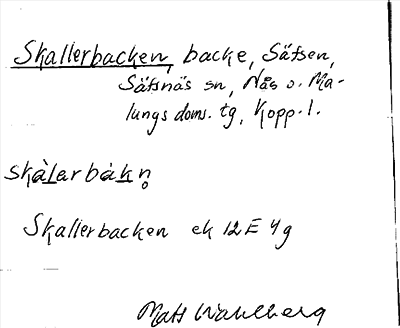 Skallerbacken, backe, Säfsen,
Säfsnäs sn, Nås o. Ma-
lungs doms. tg, Kopp. l.
skàlarbàkn̥
Skallerbacken ek 12E 4g
Mats Wahlberg